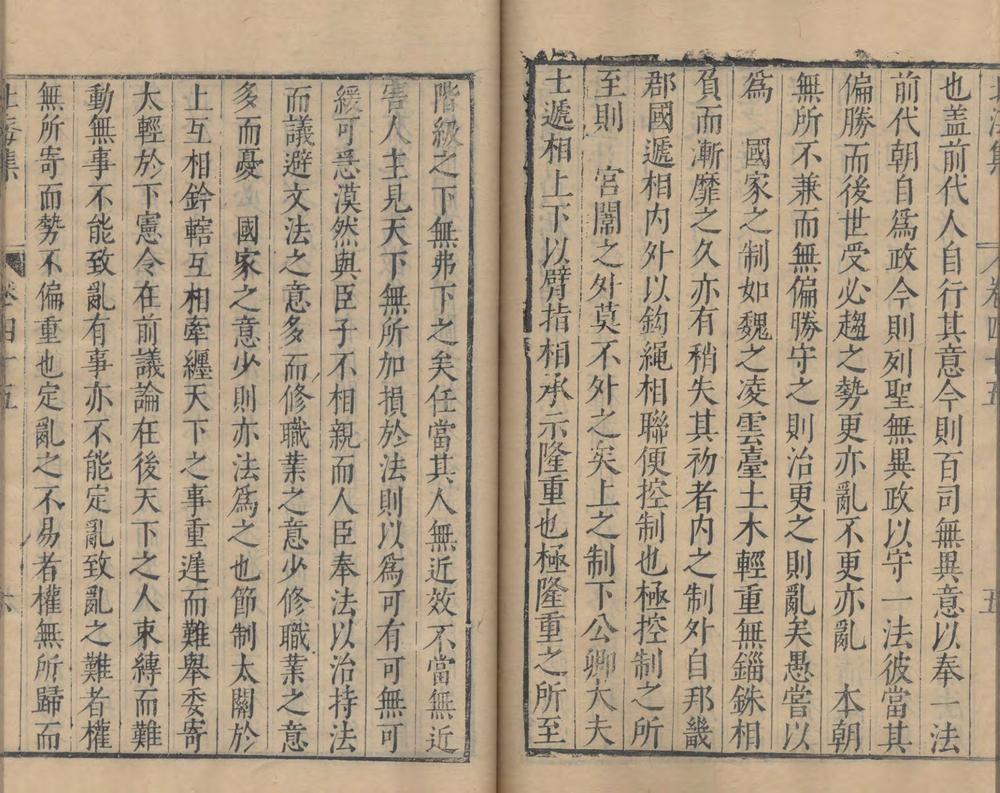 卷四十五
五
也盖前代人自行其意今則百司無異意以奉一法
前代朝自爲政今則列聖無異政以守一法彼當其
偏勝而後世受必趨之勢更亦亂不更亦亂　本朝
無所不兼而無偏勝守之則治更之則亂矣愚嘗以
爲　國家之制如魏之凌雲臺土木輕重無錙銖相
負而漸靡之久亦有稍失其初者内之制外自邦畿
郡國遞相内外以鈎繩相聯便控制也極控制之所
至則　宮闈之外莫不外之矣上之制下公卿大夫
士遞相上下以臂指相承示隆重也極隆重之所至
階級之下無弗下之矣任當其人無近效不當無近
害人主見天下無所加損於法則以爲可有可無可
緩可急漠然與臣子不相親而人臣奉法以治持法
而議避文法之意多而修職業之意少修職業之意
多而憂　國家之意少則亦法爲之也節制太關於
上互相鈐轄互相牽纏天下之事重遲而難舉委寄
太輕於下憲令在前議論在後天下之人束縛而難
動無事不能致亂有事亦不能定亂致亂之難者權
無所寄而勢不偏重也定亂之不易者權無所歸而
卷四十五
六